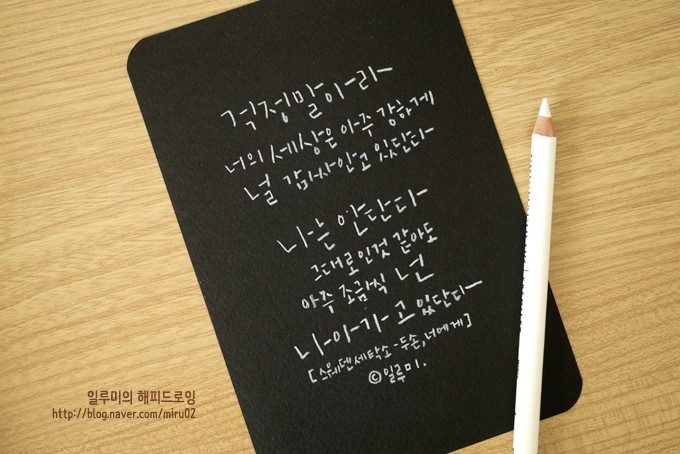 걱정말아라
너의 세상은 아주 강하게
널 감싸안고 있단다
나는 안단다
그대로인것 같아도
아주 조금씩 넌
나아가고 있단다
[스웨덴세탁소-두손,너에게]
©일루미.
일루미의 해피드로잉
http://blog.naver.com/miru02